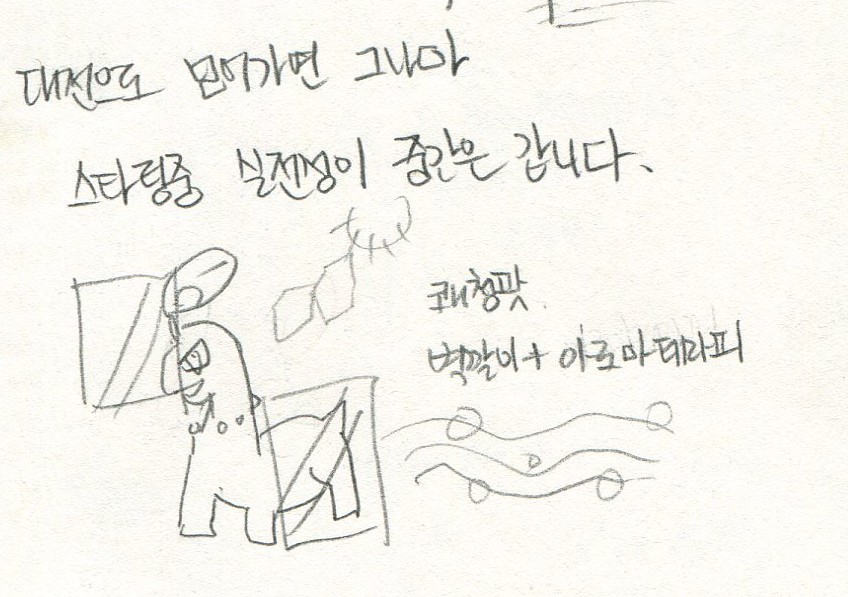 대전으로 넘어가면 그나마
스타팅중 실전성이 중간은 갑니다.
쾌청팟
벽깔이+아로마테라피